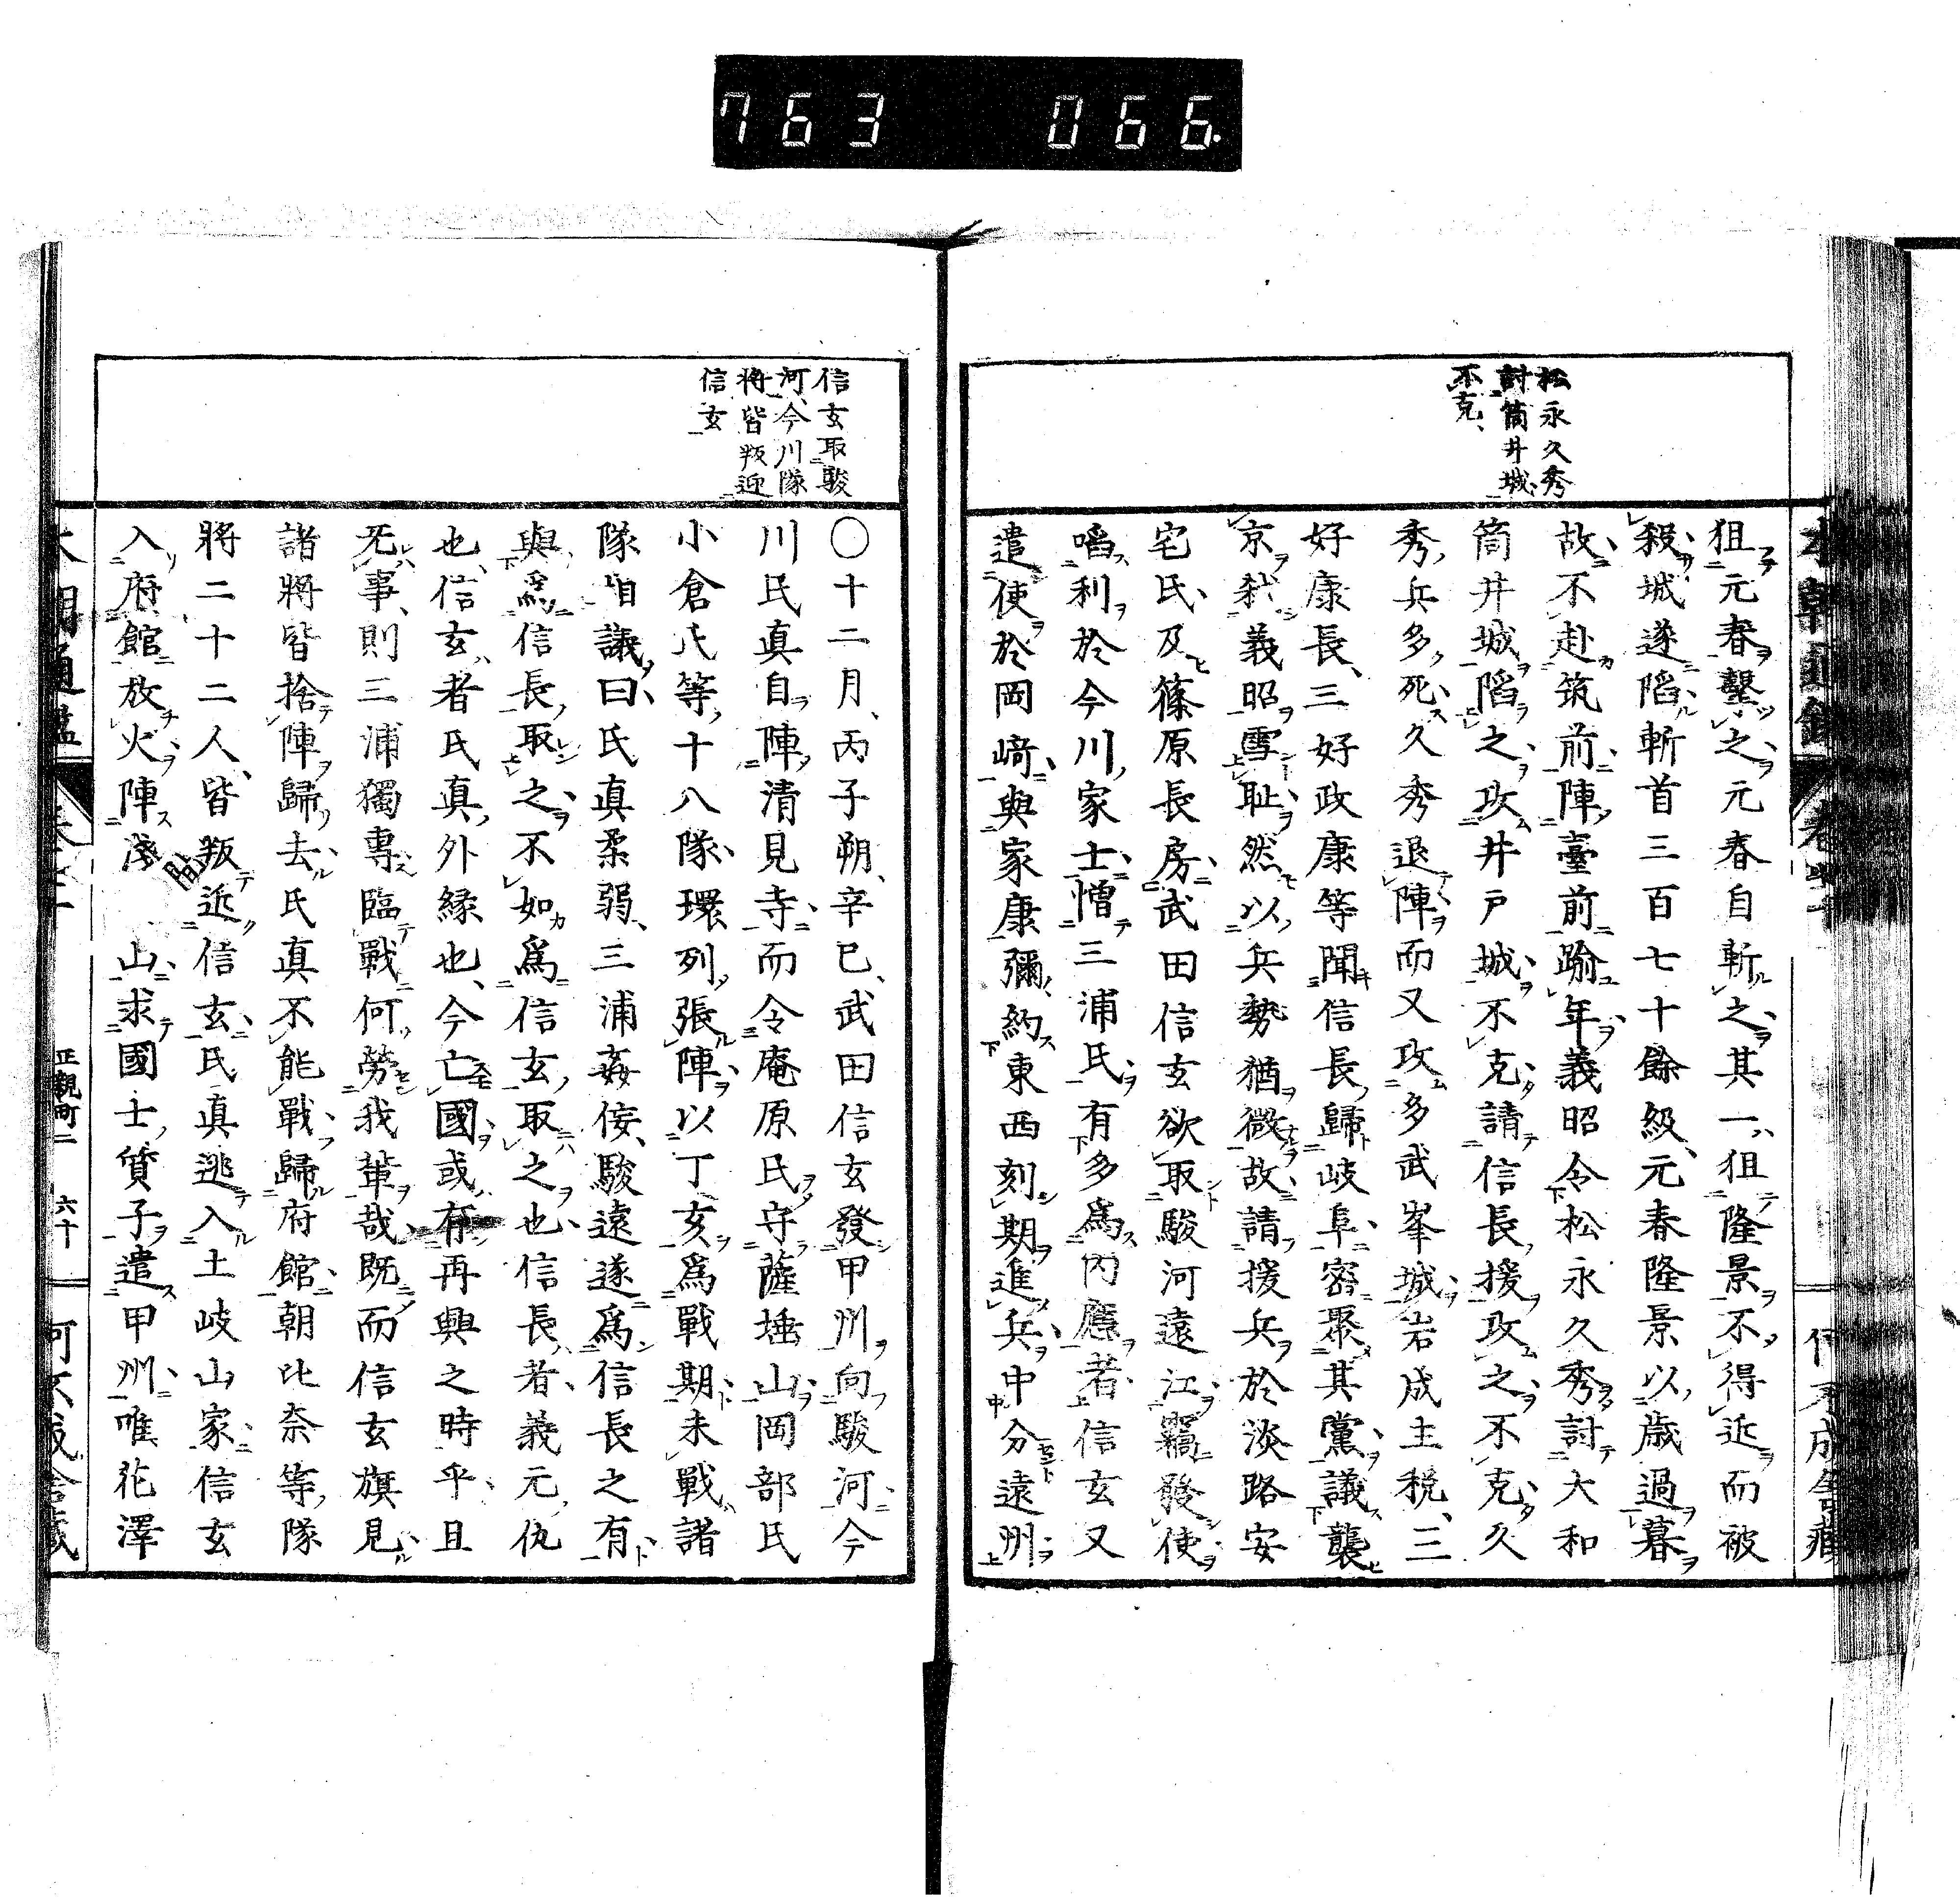 763 066.
松永久秀
討筒井城
不克
狙元春鑿之元春自斬之其一狙隆景不得近而被
殺城遂陷斬首三百七十餘級元春隆景以歲過暮
故不赴筑前陣臺前踰年義昭令松永久秀討大和
筒井城陷之攻井戸城不克請信長援攻之不克久
秀兵多死久秀退陣而又攻多武峯城岩成主税三
好康長三好政康等聞信長歸岐阜密聚其黨議襲
京弑義昭雪耻然以兵勢猶微故請援兵於淡路安
宅氏及篠原長房武田信玄欲取駿河遠江竊發使
啗利於今川家士憎三浦氏有多為内應者信玄又
遣使於岡﨑與家康彌約東西刻期進兵中分遠州
信玄取駿
河今川隊
將皆叛迎
信玄
〇十二月丙子朔辛巳武田信玄發甲州向駿河今
川氏真自陣清見寺而令庵原氏守薩埵山岡部氏
小倉氏等十八隊環列張陣以丁亥爲戰期未戰諸
隊相議曰氏真柔弱三浦姦佞駿遠遂爲信長之有
與爲信長取之不如爲信玄取之也信長者義元仇
也信玄者氏真外緣也今亡國或有再興之時乎且
无事則三浦獨專臨戰何勞我輩哉既而信玄旗見
諸將皆捨陣歸去氏真不能戰歸府館朝比奈等隊
將二十二人皆叛迎信玄氏真逃入土岐山家信玄
入府館放火陣淺間山求國士質子遣甲州唯花澤
正親町二 六十